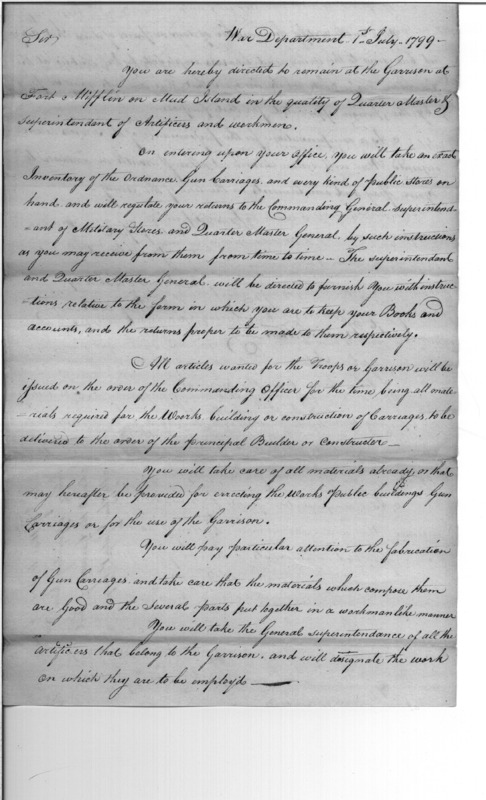 Sir War Department 1st July. 1799 —
You are hereby directed to remain at the Garrison at
Fort Mifflin on Mud Island in the quality of Quarter Master &
Superintendent of Artificers and workmen.
On entering upon your office, you will take an exact
Inventory of the Ordnance Gun Carriages, and every kind of public Stores on
hand, and will regulate your returns to the Commanding General Superintend-
-ant of Military Stores, and Quarter Master General, by such instructions
as you may receive from them from time to time — The Superintendant
and Quarter Master General will be directed to furnish You with instruc-
-tions relative to the form in which you are to keep your Books and
accounts, and the returns proper to be made to them respectively.
All articles wanted for the Troops or Garrison will be
issued on the order of the Commanding Officer for the time being all mate-
-rials required for the Works building or construction of Carriages, to be
delivered to the order of the principal Builder or Constructer —
You will take care of all materials already, or that
may hereafter be provided for erecting the Works public buildings Gun
Carriages or for the use of the Garrison.
You will pay particular attention to the fabrication
of Gun Carriages and take care that the materials which compose them
are Good and the Several parts put together in a workmanlike manner
You will take the General Superintendance of all the
artificers that belong to the Garrison. and will designate the work
on which they are to be employ'd —